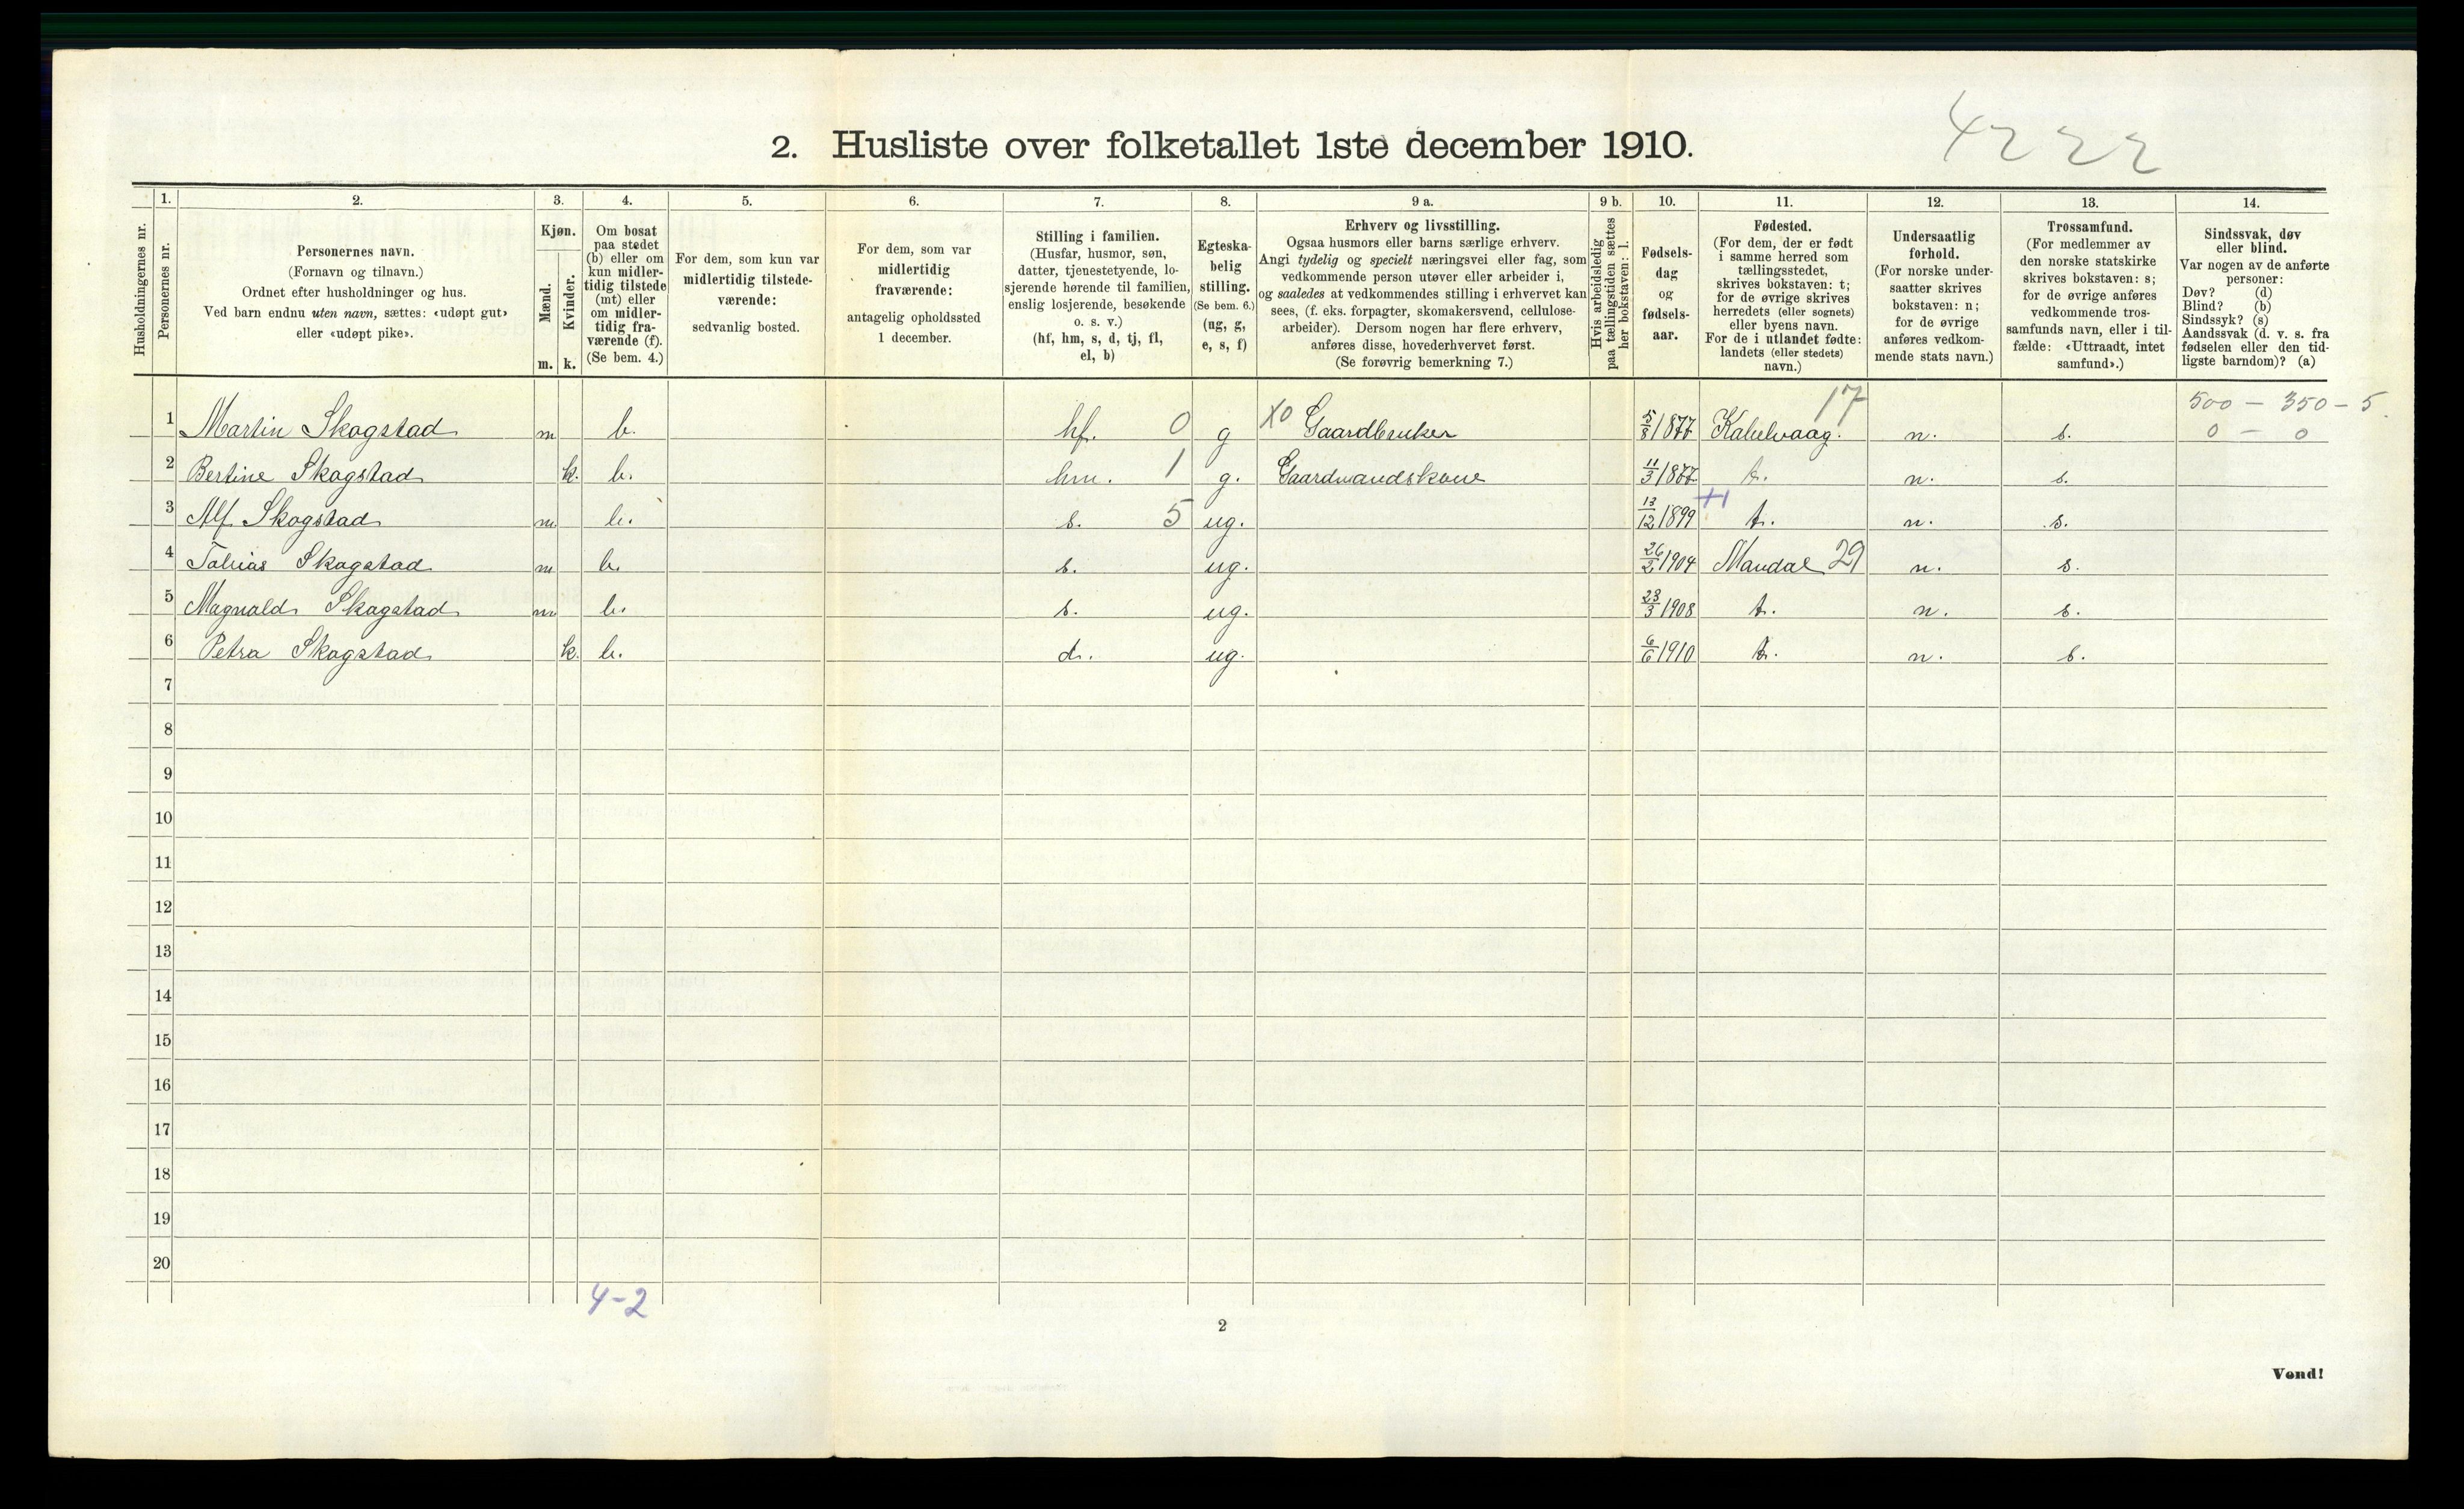 4222
2. Husliste over folketallet 1ste december 1910.
Husholdningernes nr.
1. Personernes nr.
2. Personernes navn.
(Fornavn og tilnavn.)
Ordnet efter husholdninger og hus.
Ved barn endnu uten navn, sættes: «udøpt gut»
eller «udøpt pike».
3. Kjøn.
Mænd. m.
Kvinder. k.
4. Om bosat
paa stedet
(b) eller om
kun midler-
tidig tilstede
(mt) eller
om midler-
tidig fra-
værende (f).
(Se bem. 4.)
5. For dem, som kun var
midlertidig tilstede-
værende:
sedvanlig bosted.
6. For dem, som var
midlertidig
fraværende:
antagelig opholdssted
1 december.
7. Stilling i familien.
(Husfar, husmor, søn,
datter, tjenestetyende, lo-
sjerende hørende til familien,
enslig losjerende, besøkende
o. s. v.)
(hf, hm, s, d, tj, fl,
el, b)
8. Egteska-
belig
stilling.
(Se bem. 6.)
(ug, g,
e, s, f)
9 a. Erhverv og livsstilling.
Ogsaa husmors eller barns særlige erhverv.
Angi tydelig og specielt næringsvei eller fag, som
vedkommende person utøver eller arbeider i,
og saaledes at vedkommendes stilling i erhvervet kan
sees, (f. eks. forpagter, skomakersvend, cellulose-
arbeider). Dersom nogen har flere erhverv,
anføres disse, hovederhvervet først.
(Se forøvrig bemerkning 7.)
9 b. Hvis arbeidsledig
paa tællingstiden sættes
her bokstaven: l.
10. Fødsels-
dag
og
fødsels-
aar.
11. Fødested.
(For dem, der er født
i samme herred som
tællingsstedet,
skrives bokstaven: t;
for de øvrige skrives
herredets (eller sognets)
eller byens navn.
For de i utlandet fødte:
landets (eller stedets)
navn.)
12. Undersaatlig
forhold.
(For norske under-
saatter skrives
bokstaven: n;
for de øvrige
anføres vedkom-
mende stats navn.)
13. Trossamfund.
(For medlemmer av
den norske statskirke
skrives bokstaven: s;
for de øvrige anføres
vedkommende tros-
samfunds navn, eller i til-
fælde: «Uttraadt, intet
samfund».)
14. Sindssvak, døv
eller blind.
Var nogen av de anførte
personer:
Døv? (d)
Blind? (b)
Sindssyk? (s)
Aandssvak (d. v. s. fra
fødselen eller den tid-
ligste barndom)? (a)
17 500 - 350 - 5.
1 Martin Skogstad m b. hf. 0 g X0 Gaardbruker 5/8 1877 Kabelvaag. n. s. 0 - 0
2 Bertine Skogstad k. b. hm. 1 g. Gaardmandskone 11/3 1877 t. n. s.
3 Alf Skogstad m b. s. 5 ug. 13/12 1899 +1 t. n. s.
4 Tobias Skogstad m b. s. ug. 26/2 1904 Mandal 29 n. s.
5 Magnald Skogstad m b. s. ug. 23/3 1908 t. n. s.
6 Petra Skogstad k. b. d. ug. 6/6 1910 t. n. s.
7
8
9
10
11
12
13
14
15
16
17
18
19
20
4-2
2
Vend!